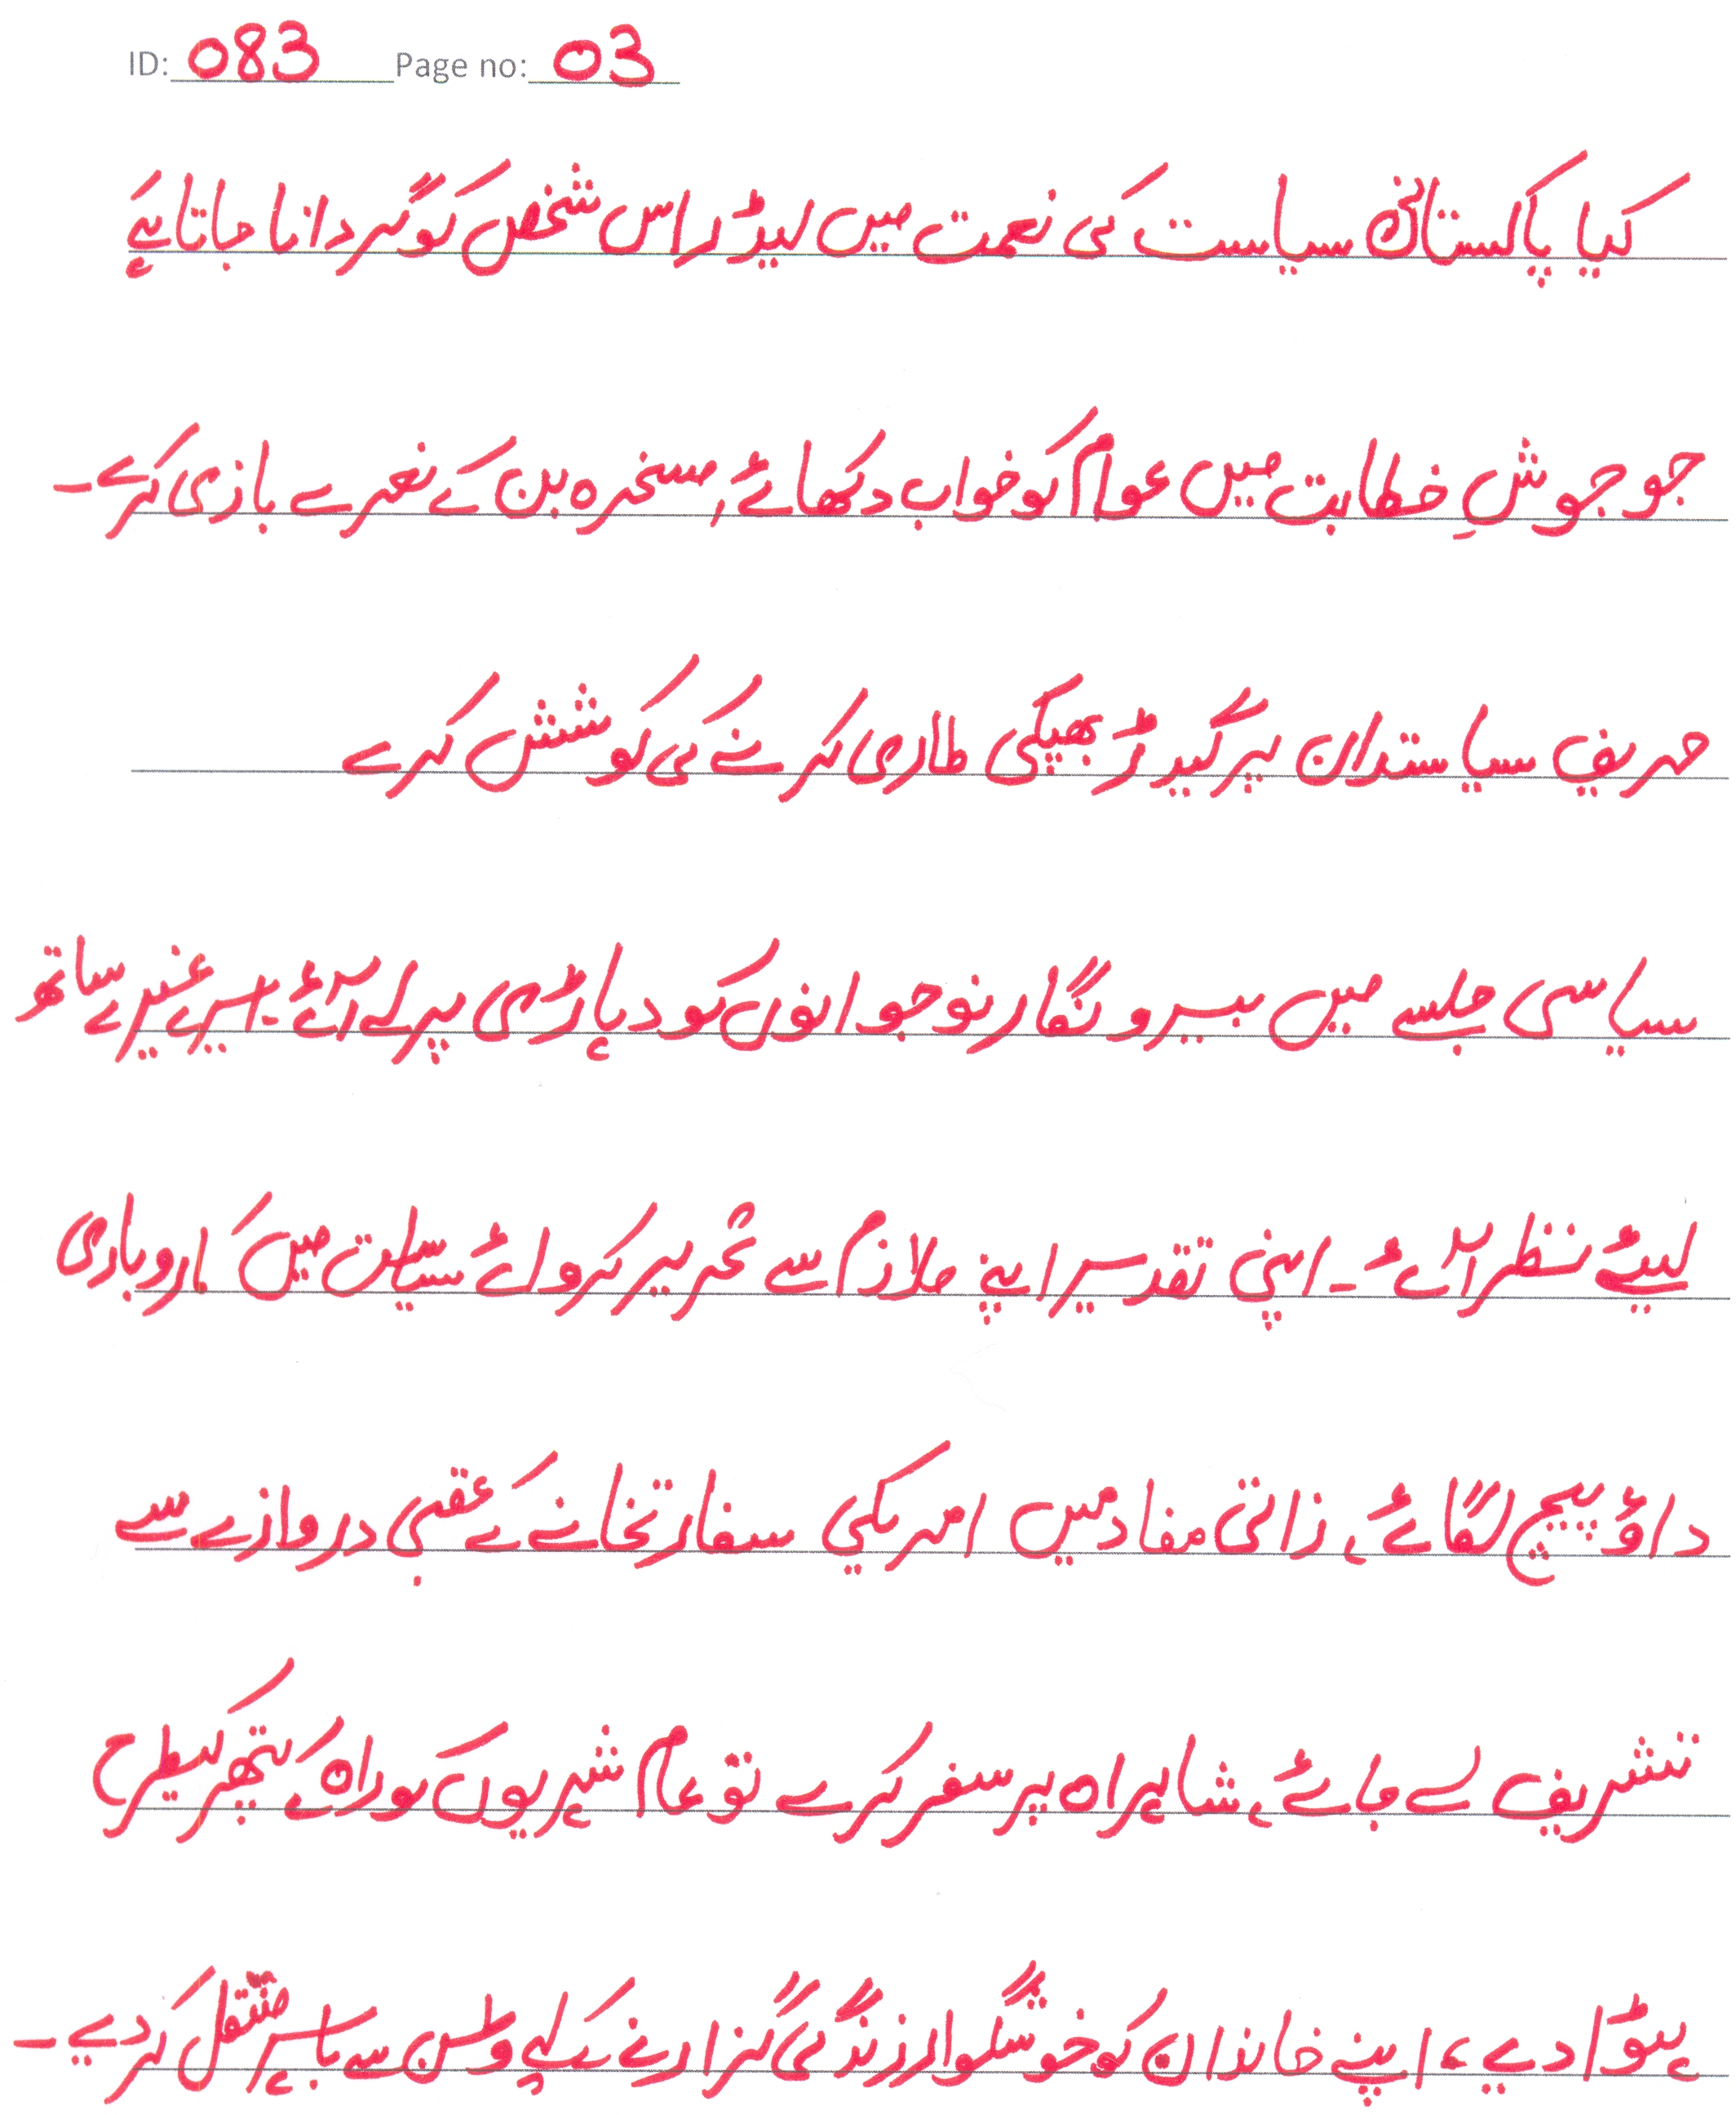 ID: 083 Page no: 03
کیا پاکستانی سیاست کی نعمت میں لیڈر اس شخص کو گردانا جاتا ہے
جو جوشِ خطابت میں عوام کو خواب دکھائے, مسخرہ بن کے نعرے بازی کرے۔
حریف سیاستدان پر گیدڑ بھپکی طاری کرنے کی کوشش کرے
سیاسی جلسے میں بیروگار نوجوانوں کو دہاڑی پر لے آئے۔ ایرے غیرے ساتھ
لیئے نظر آئے۔ اپنی تقدیر اپنے ملازم سے تحریر کروائے سیاست میں کاروباری
داؤ پیچ لگائے، ذاتی مفاد میں امریکی سفارتخانے کے عقبی دروازے سے
تشریف لے جائے، شاہراہ پر سفر کرے تو عام شہریوں کو راہ کے پتھر کیطرح
ہٹوا دے، اپنے خاندان کو خوشگوار زندگی گزارنے کیلیے وطن سے باہر منتقل کر دے۔